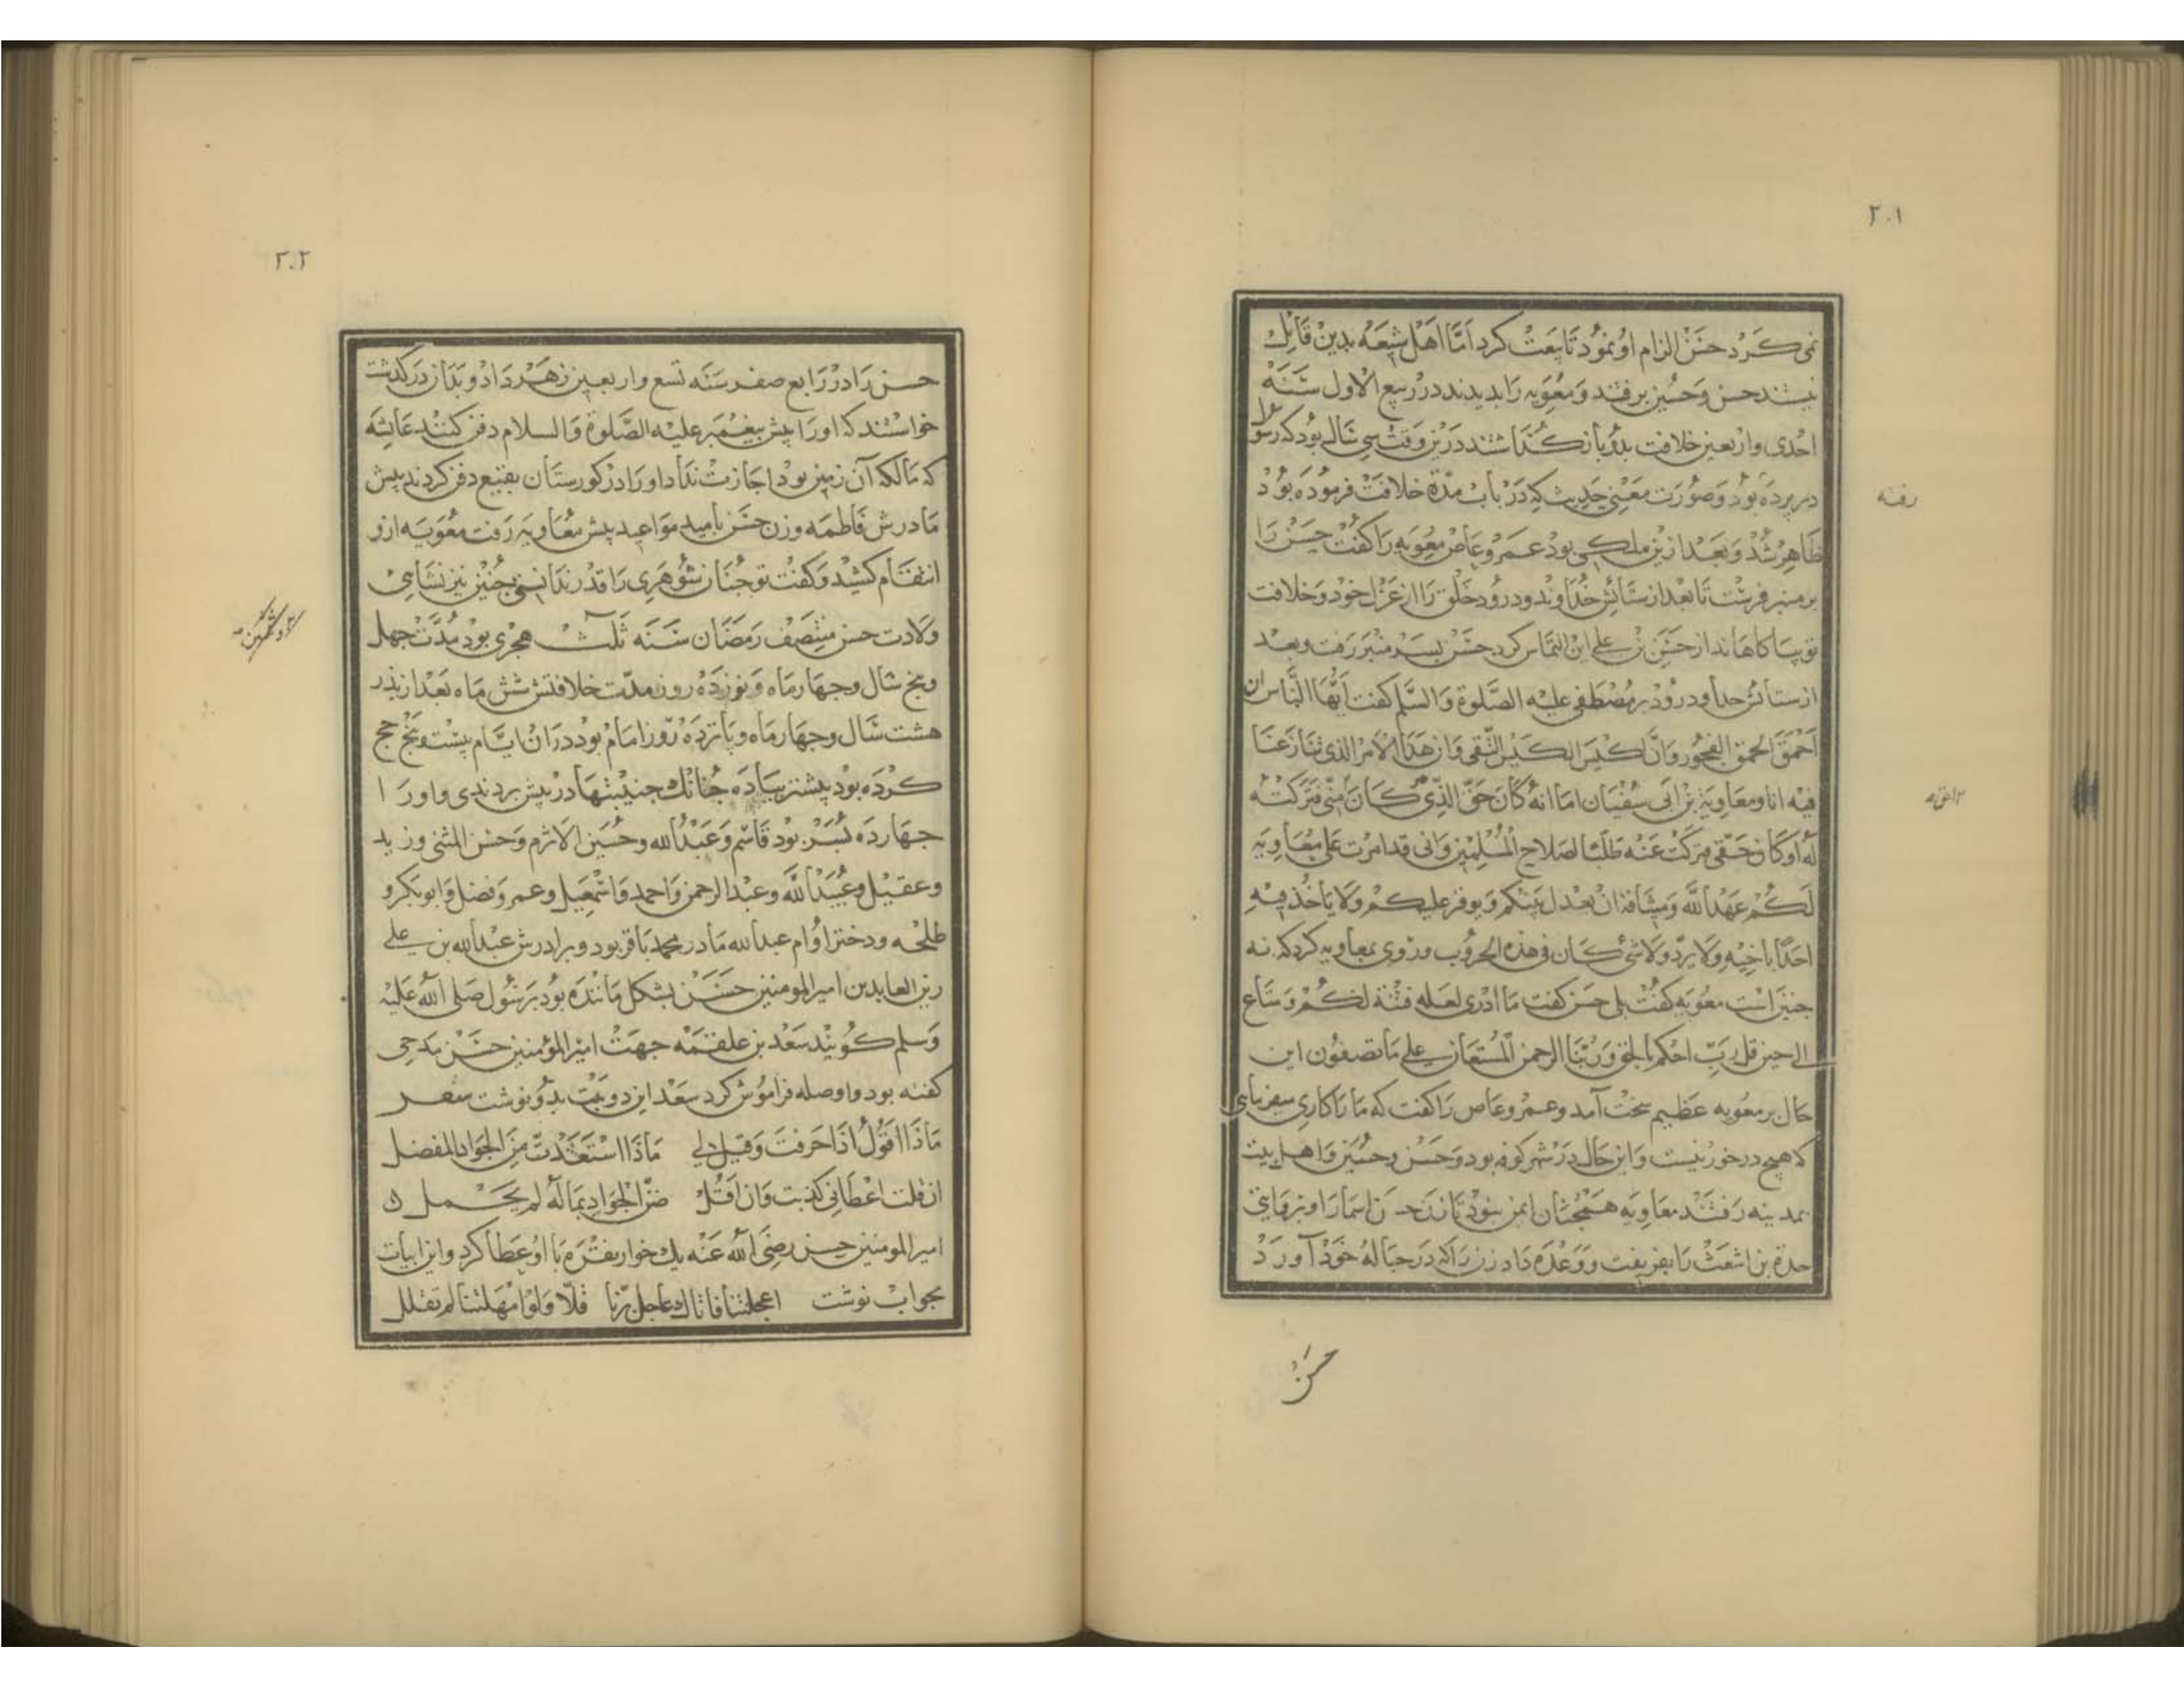 ۲۰۱
نمی کرد حسن الزام او نمود تا بیعت کرد اما اهل شیعه بدین قایل
نیستند حسن و حسین برفتند و معویه را بدیدند در ربیع الاول سنه
احدی و اربعین خلافت بدو باز گذاشتند درین وقت سی سال بود که رسول
در پرده بود و صورت معنی حدیث که در باب مدة خلافت فرموده بود
رفته
ظاهر شد و بعد ازین ملکی بود عمرو عاص معویه را گفت حسن را
بر منبر فرست تا بعد از ستائش خداوند و درود خلق را از عزل خود و خلافت
تو بیاگاهاند از حسن بن علی این التماس کرد حسن بسر منبر رفت و بعد
از ستائش خدا و درود بر مصطفی علیه الصلوة والسلم گفت ایها الناس ان
احمق الحمق الفجور وان اکیس الکیس التقی وان هذا الامر الذی تنازعنا
فیه انا ومعاویة بن ابی سفیان اما انه کان حق الذی کان منی فترکته
له او کان حقی فترکت عنه طلبا لصلاح المسلمین وانی قد امرت علی معاویه
لکم عهد الله ومیثاقه ان یعدل بینکم ویوفر علیکم ولا یاخذ فیه
احدا باخیه ولا یرد ولا شئ کان فی هذه الحروب و روی بمعاویه کرد که نه
چنین است معویه گفت بلی حسن گفت ما ادری لعله فتنة لکم ومتاع
الی حین قل رب احکم بالحق وربنا الرحمن المستعان علی ما تصفون این
حال بر معویه عظیم سخت آمد و عمرو عاص را گفت که ما را کاری میفرمای
که هیچ در خور نیست و این حال در شهر کوفه بود و حسن و حسین و اهل بیت
بمدینه رفتند معاویه همچنان ایمن نبود تا زن حسن اسما را و بروایتی
جعدة بن اشعث را بفریفت و وعده داد زن را که در حباله خود آورد
حسن
۲۰۲
حسن را در رابع صفر سنه تسع و اربعین زهر داد و بدان درگذشت
خواستند که اورا پیش پیغمبر علیه الصلوة والسلام دفن کنند عائشه
که مالکه آن زمین بود اجازت نداد اورا در کورستان بقیع دفن کردند پیش
مادرش فاطمه وزن حسن بامید مواعید پیش معاویه رفت معویه ازو
انتقام کشید و گفت تو چنان شوهری را قدر ندانستی چنین نیز نشاسی
ولادت حسن منتصف رمضان سنه ثلث هجری بود مدت چهل
وپنج سال و چهار ماه و نوزده روز مدت خلافتش شش ماه بعد از پدر
هشت سال و چهار ماه و پانزده روز امام بود در ان ایام بیست وپنج حج
کرده بود پیشتر پیاده چنانک جنیبتها در پیش بردندی و اورا
چهارده پسر بود قاسم و عبدالله و حسین الاثرم و حسن المثنی و زید
و عقیل و عبیدالله و عبدالرحمن و احمد و اسمعیل و عمر و فضل و ابوبکر و
طلحه و دختر او ام عبدالله مادر محمد باقر بود و برادرش عبدالله بن علی
زین العابدین امیرالمومنین حسن بشکل ماننده بود برسول صلی الله علیه
وسلم گویند سعد بن علقمه جهت امیرالمؤمنین حسن مدحی
گفته بود و او صله فراموش کرد سعد این دو بیت بدو نوشت شعر
ماذا اقول اذا حرفت وقیل لی ماذا استفدت من الجواد المفضل
ان قلت اعطانی کذبت وان اقل ضن الجواد بماله لم یجمل
امیرالمومنین حسن رضی الله عنه یک خوار نقره با او عطا کرد و این ابیات
بجواب نوشت اعجلتنا فاتاک عاجل برنا قلا ولو امهلتنا لم تقلل